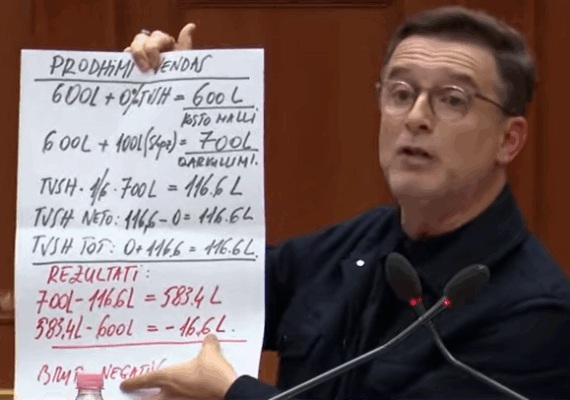 PRODHIMI VENDAS
600L + 0% TVSH = 600 L
KOSTO MALLI.
600L + 100L (Shpz) = 700L
QARKULLIMI.
TVSH · 1/6 · 700L = 116.6 L
TVSH NETO: 116,6 - 0 = 116.6 L
TVSH TOT: 0 + 116,6 = 116.6 L.
REZULTATI:
700L - 116,6L = 583.4 L
583,4L - 600L = - 16.6 L.
BRUT NEGATIV